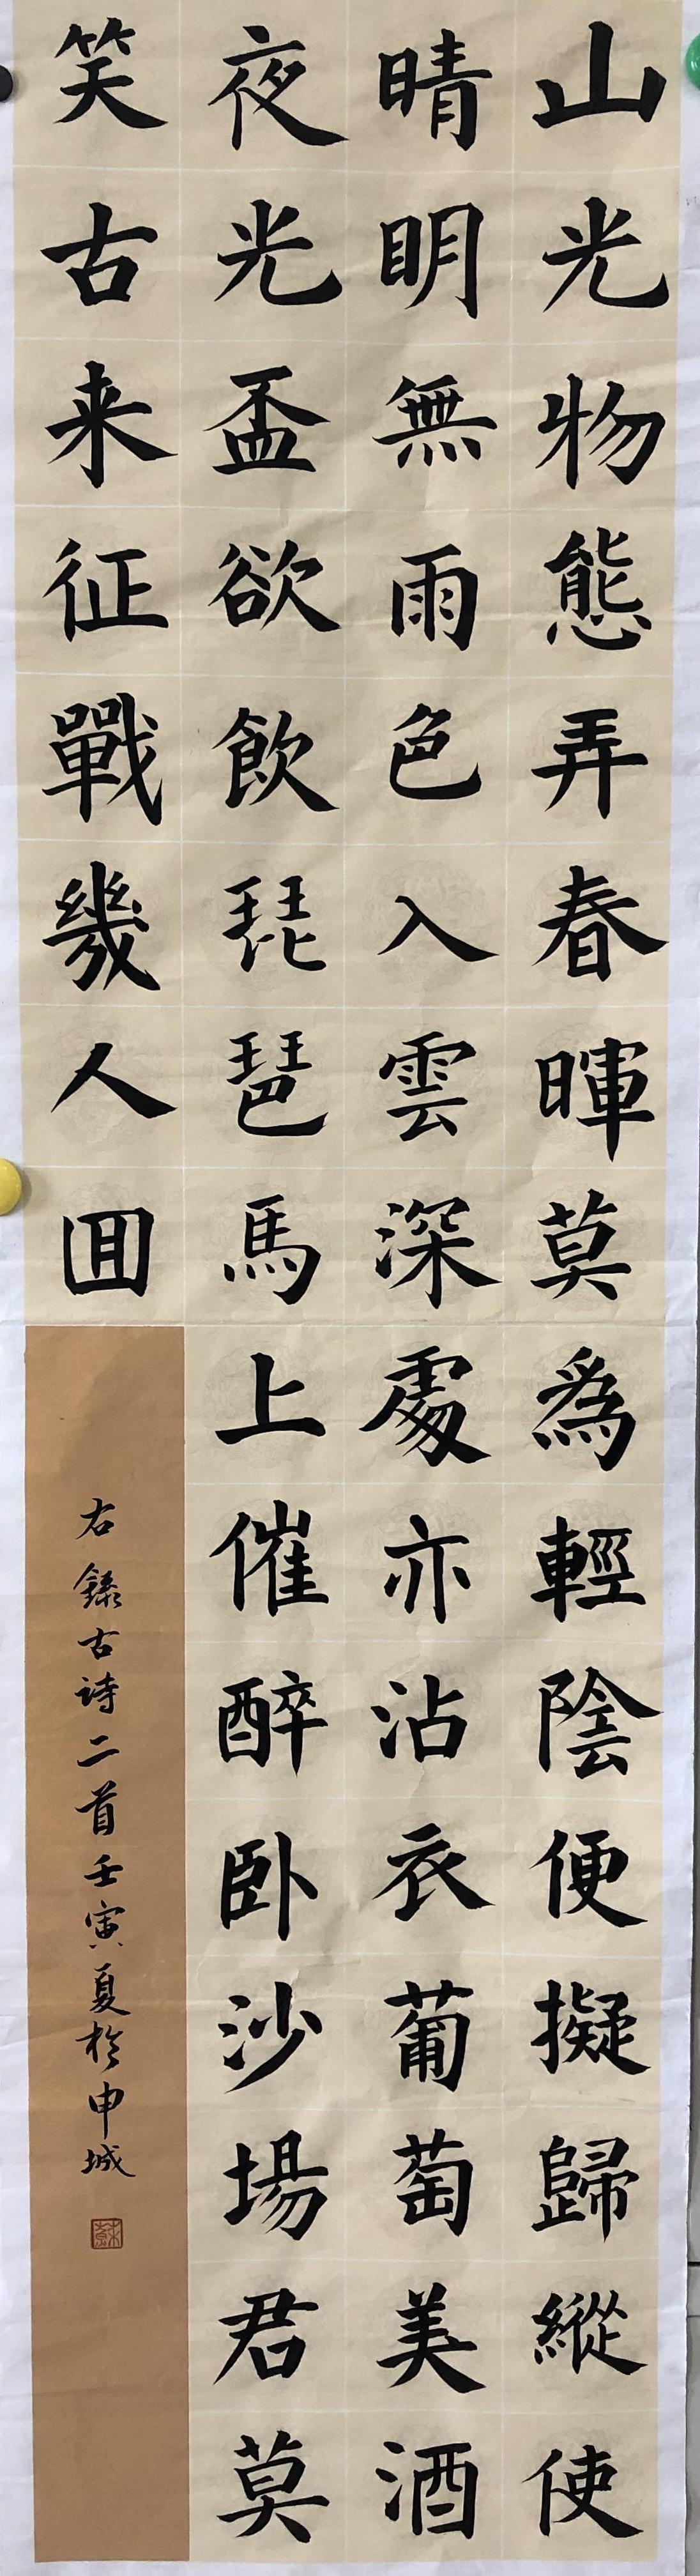 山光物態弄春暉莫為輕陰便擬歸縱使
晴明無雨色入雲深處亦沾衣葡萄美酒
夜光盃欲飲琵琶馬上催醉卧沙場君莫
笑古来征戰幾人囬
右錄古詩二首壬寅夏於申城